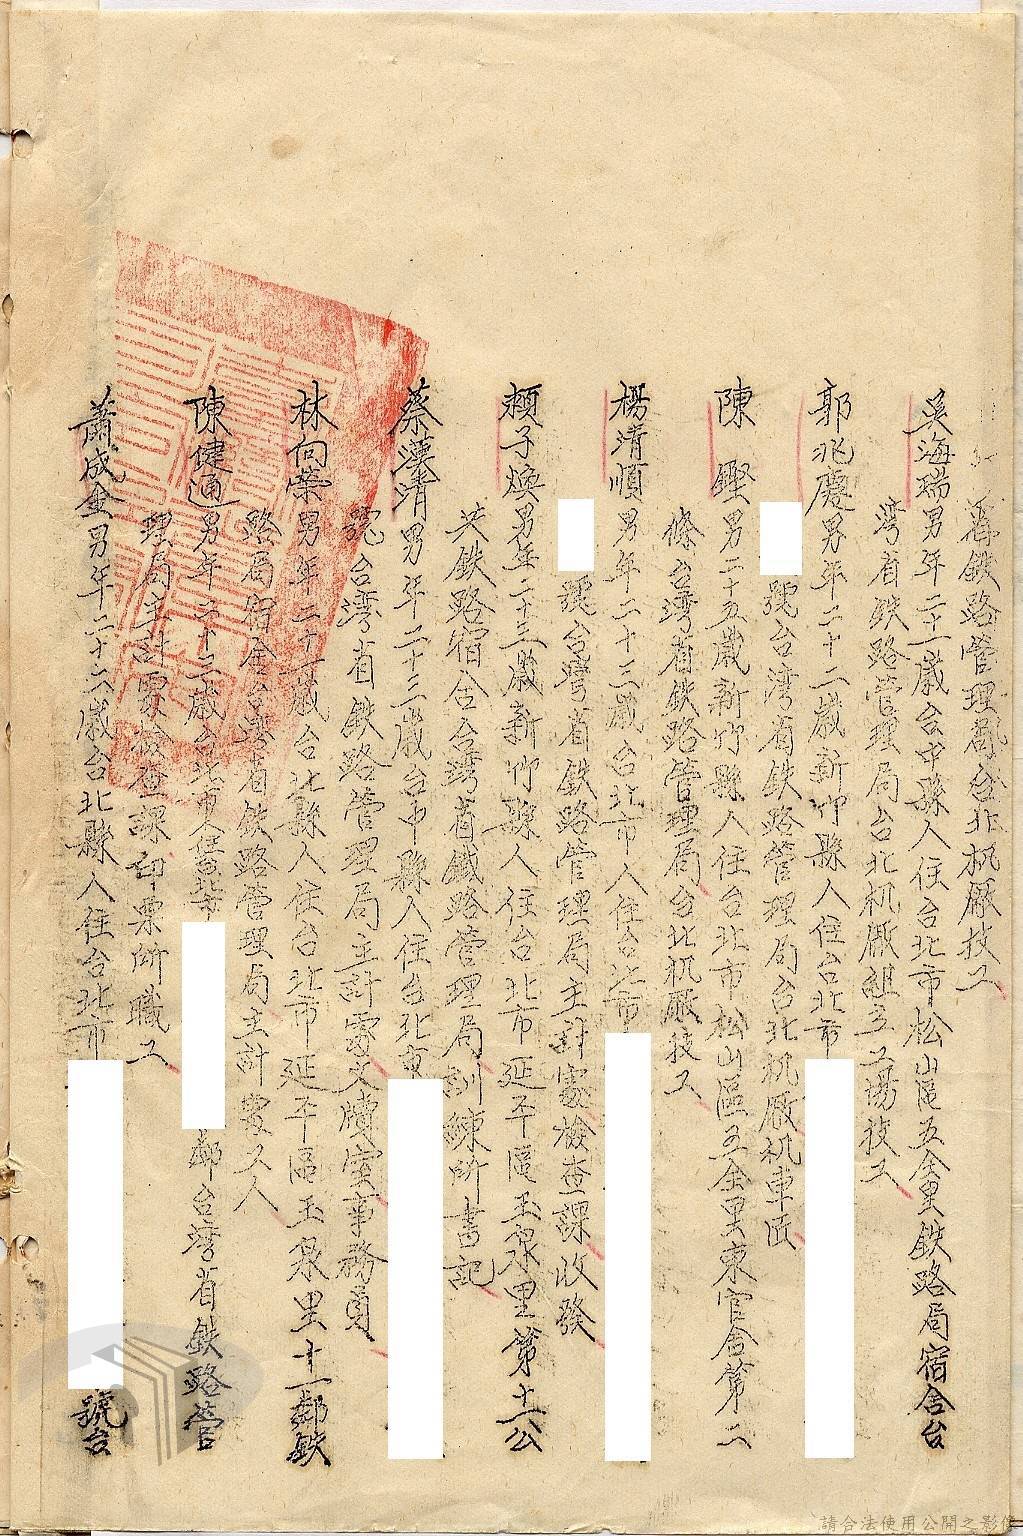 湾鉄路管理局台北机厰技工
吳海瑞男年二十一歲台中縣人住台北市松山區五全里鉄路局宿舍台
湾省鉄路管理局台北机厰組立工場技工
郭兆慶男年二十二歲新竹縣人住台北市
號台湾省鉄路管理局台北机厰机車匠
陳鏗男二十五歲新竹縣人住台北市松山區五全里東官舍第二
條台湾省鉄路管理局台北机厰技工
楊清順男年二十三歲台北市人住台北市
號台灣省鉄路管理局主計處檢查課收發
賴子煥男年二十三歲新竹縣人住台北市延平區玉泉里第十二公
共鉄路宿舍台湾省鐵路管理局訓練所書記
蔡漢清男年二十三歲台中縣人住台北市
號台湾省鉄路管理局主計處文牘室事務員
林向榮男年二十一歲台北縣人住台北市延平區玉泉里十二鄰鉄
路局宿舍台灣省鉄路管理局主計處工人
陳健通男年二十三歲台北市人住台北市
鄰台湾省鉄路管
理局主計處檢查課印票所職工
蕭成金男年二十六歲台北縣人住台北市
號台
請合法使用公開之影像